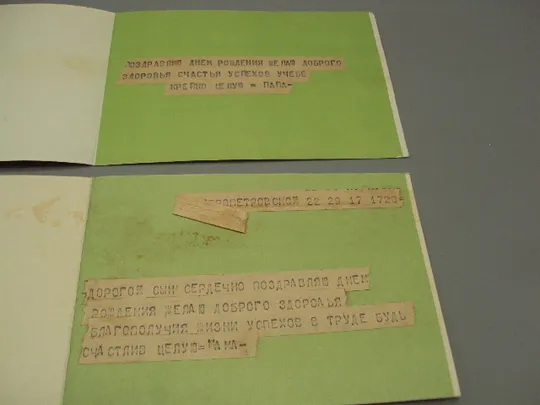 ПОЗДРАВЛЯЮ ДНЕМ РОЖДЕНИЯ ЖЕЛАЮ ДОБРОГО
ЗДОРОВЬЯ СЧАСТЬЯ УСПЕХОВ УЧЕБЕ
КРЕПКО ЦЕЛУЮ = ПАПА-
22 29 17 1723-
ДОРОГОЙ СЫН СЕРДЕЧНО ПОЗДРАВЛЯЮ ДНЕМ
РОЖДЕНИЯ ЖЕЛАЮ ДОБРОГО ЗДОРОВЬЯ
БЛАГОПОЛУЧИЯ ЖИЗНИ УСПЕХОВ В ТРУДЕ БУДЬ
СЧАСТЛИВ ЦЕЛУЮ=МАМА-